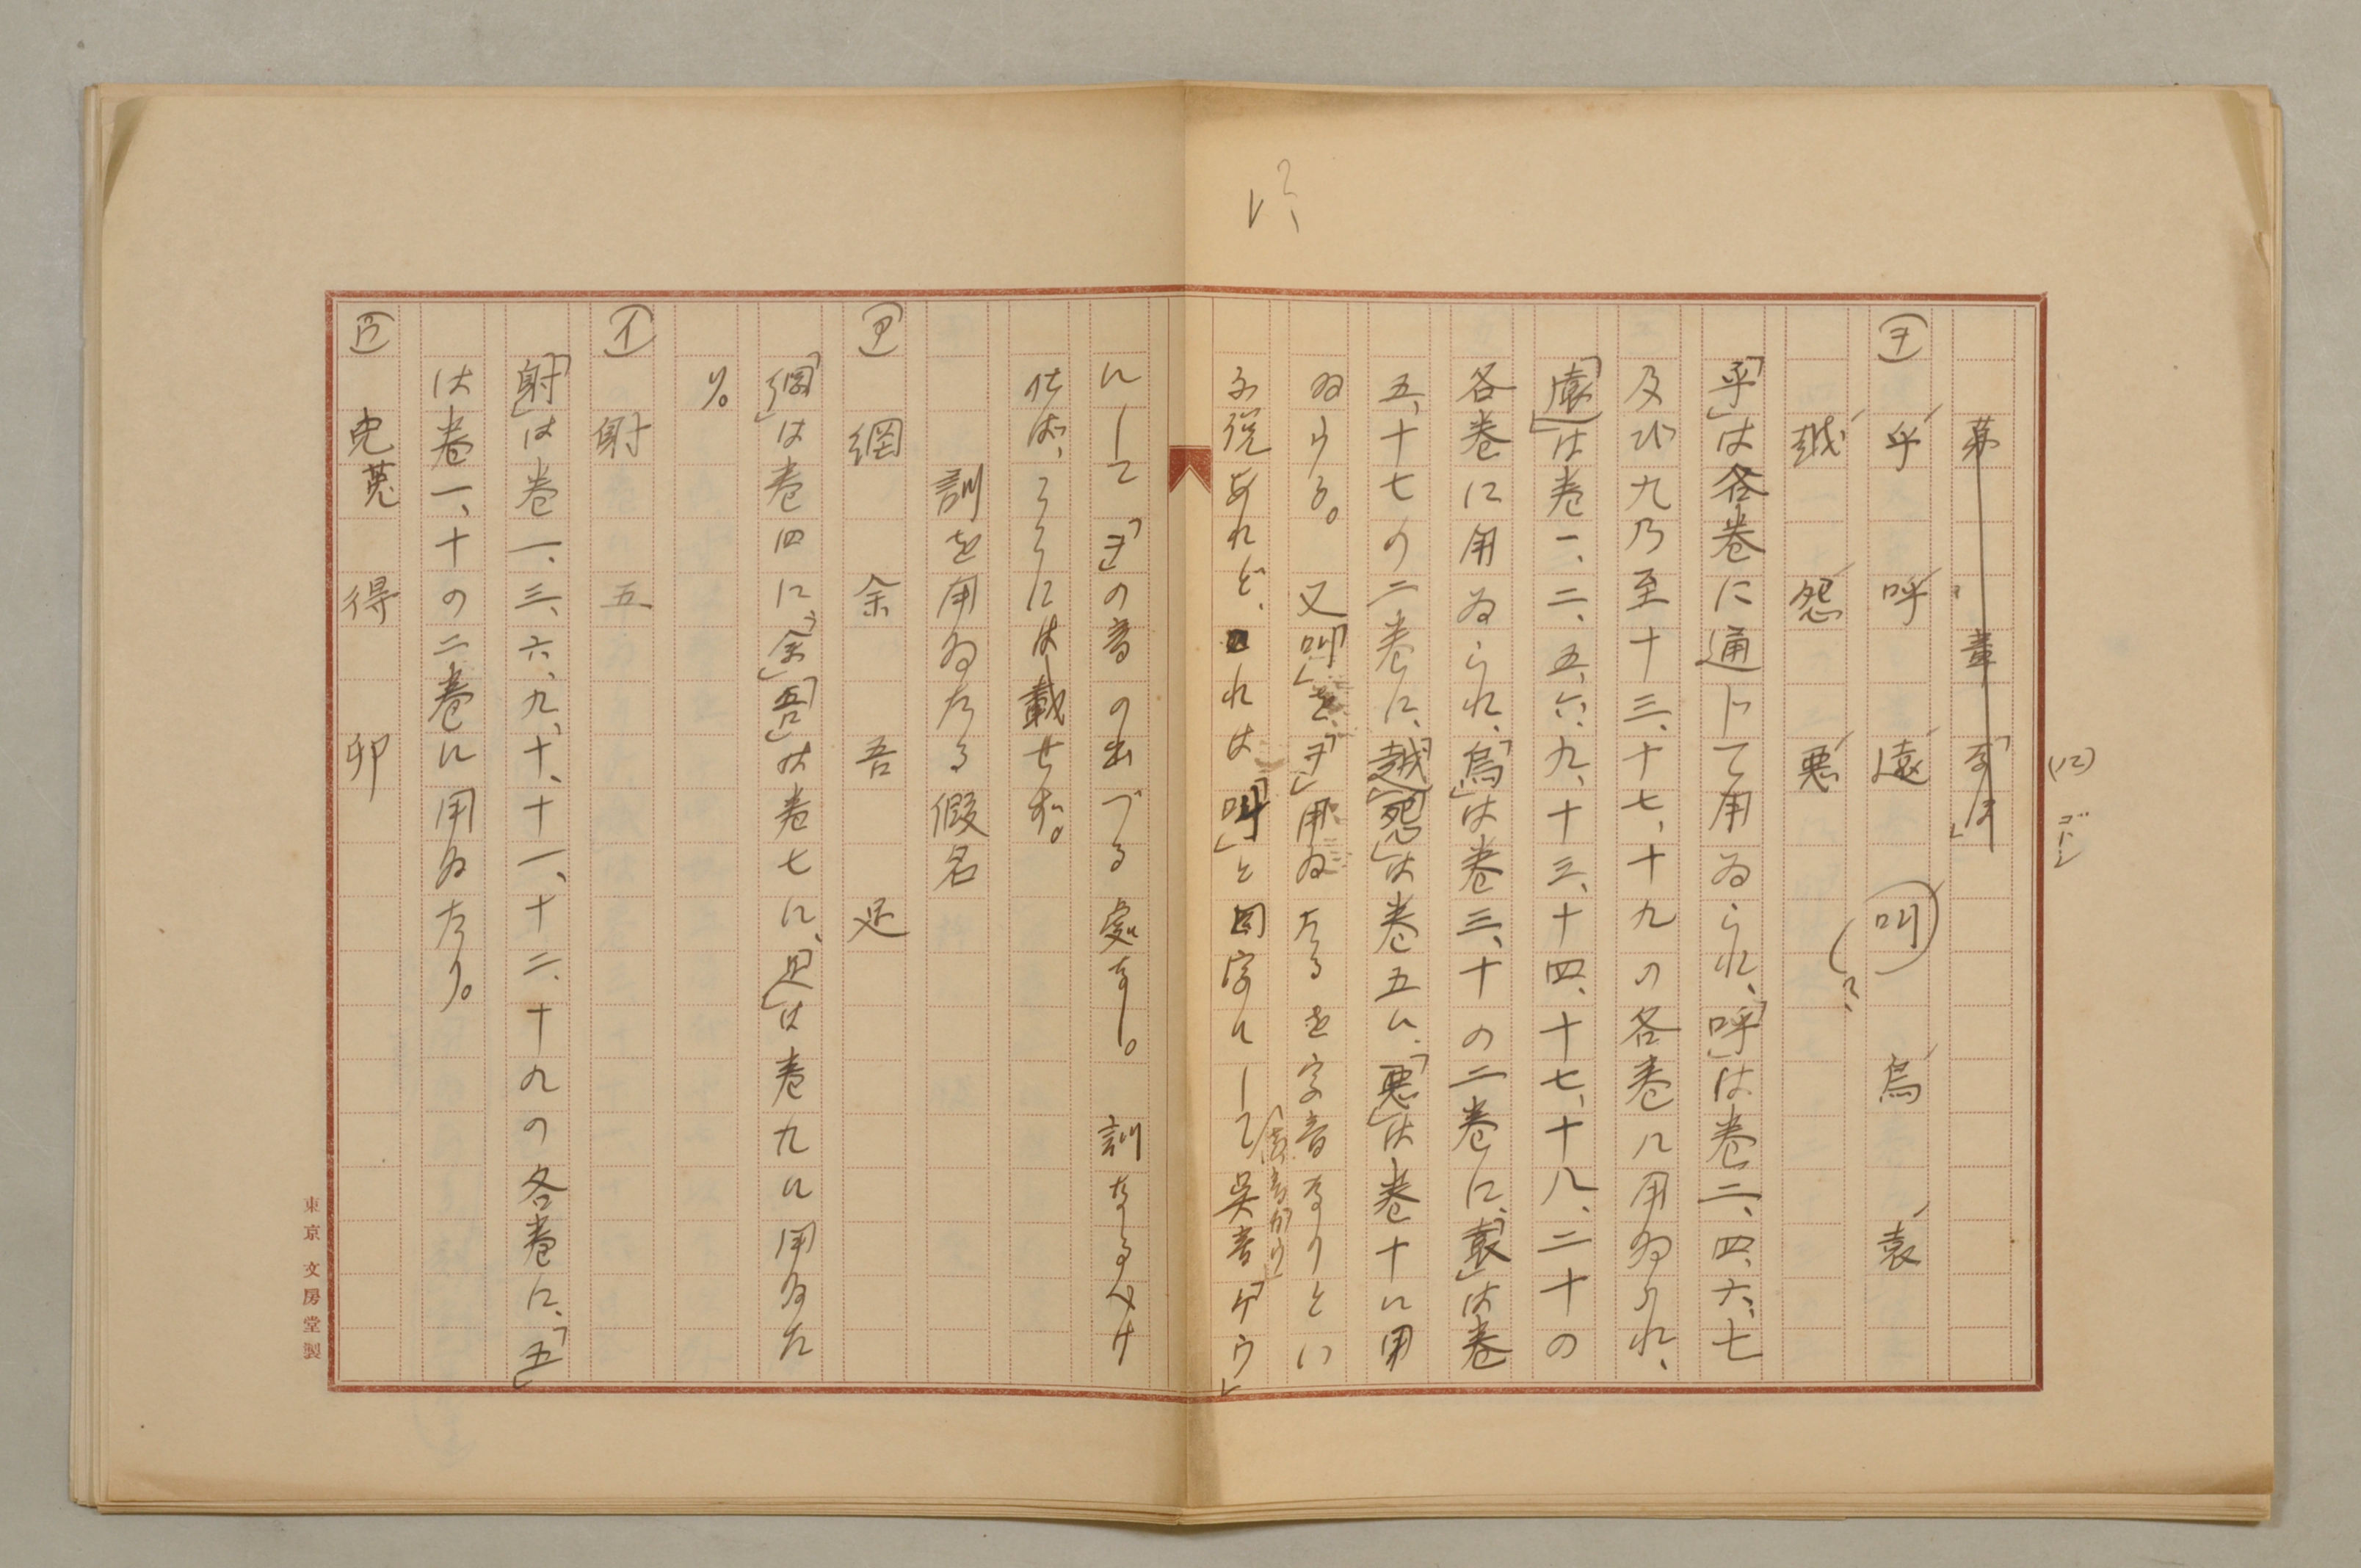 ヲ 乎 呼 遠 叫 烏 袁
越 怨 悪
「乎」は各巻に通じて用ゐられ、「呼」は巻二、四、六、七
及び九乃至十三、十七、十九の各巻に用ゐられ、
「遠」は巻一、二、五、六、九、十三、十四、十七、十八、二十の
各巻に用ゐられ、「烏」は巻三、十の二巻に、「袁」は巻
五、十七の二巻に、「越」「怨」は巻五に、「悪」は巻十に用
ゐける。 又「叫」を、「ヲ」用ゐたるを字音なりとい
ふ説あれど、これは「叫」と同字にして呉音「ケウ」
にして「ヲ」の音の出づる處なし。 訓なるべけ
れば、こゝには載せず。
訓を用ゐたる假名
ア 網 余 吾 足
「網」は巻四に、「余」「吾」は巻七に、「足」は巻九に用ゐた
り。
イ 射 五
「射」は巻一、三、六、九、十、十一、十二、十九の各巻に、「五」
は巻一、十の二巻に用ゐたり。
ウ 兎菟 得 卯
東京 文房堂製